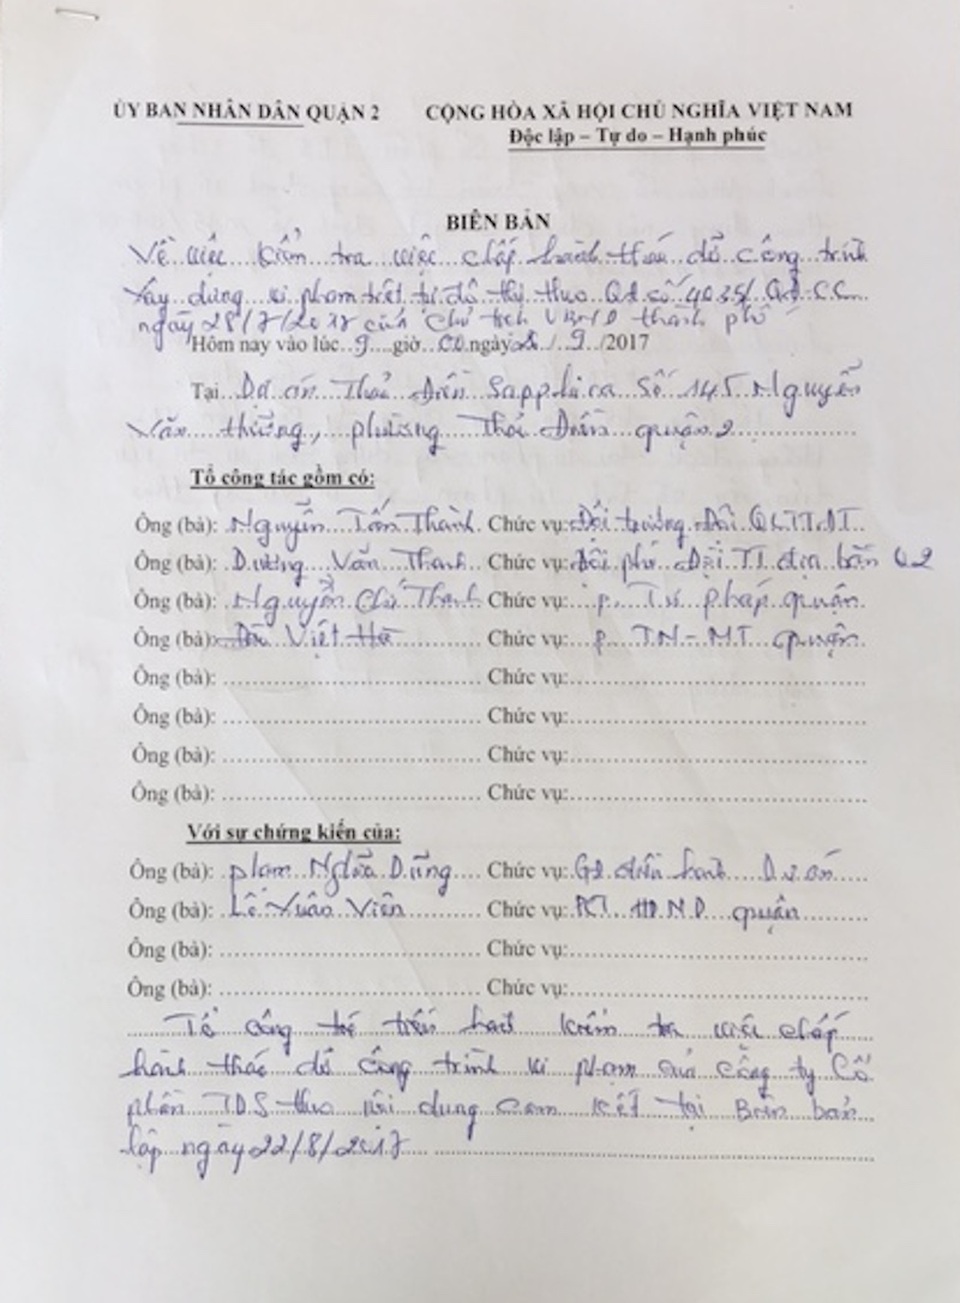 ỦY BAN NHÂN DÂN QUẬN 2
CỘNG HÒA XÃ HỘI CHỦ NGHĨA VIỆT NAM
Độc lập – Tự do – Hạnh phúc
BIÊN BẢN
Về việc kiểm tra việc chấp hành tháo dỡ công trình
xây dựng vi phạm trật tự đô thị theo QĐ số 4035/QĐ-CC
ngày 28/7/2017 của Chủ tịch UBND thành phố
Hôm nay vào lúc 9 giờ 00 ngày /9/2017
Tại Dự án Thảo Điền Sapphire Số 145 Nguyễn
Văn Hưởng, phường Thảo Điền quận 2
Tổ công tác gồm có:
Ông (bà): Nguyễn Tấn Thành Chức vụ: Đội trưởng Đội QLTTĐT
Ông (bà): Dương Văn Thanh Chức vụ: Đội phó Đội TT địa bàn Q2
Ông (bà): Nguyễn Chí Thanh Chức vụ: p. Tư pháp quận
Ông (bà): Việt Hà Chức vụ: p TN-MT quận
Ông (bà): Chức vụ:
Ông (bà): Chức vụ:
Ông (bà): Chức vụ:
Ông (bà): Chức vụ:
Với sự chứng kiến của:
Ông (bà): Phạm Nghĩa Dũng Chức vụ: GĐ điều hành Dự án
Ông (bà): Lê Xuân Viên Chức vụ: PCT HĐND quận
Ông (bà): Chức vụ:
Ông (bà): Chức vụ:
Tổ công tác tiến hành kiểm tra việc chấp
hành tháo dỡ công trình vi phạm của công ty Cổ
phần TDS theo nội dung cam kết tại Biên bản
lập ngày 22/8/2017